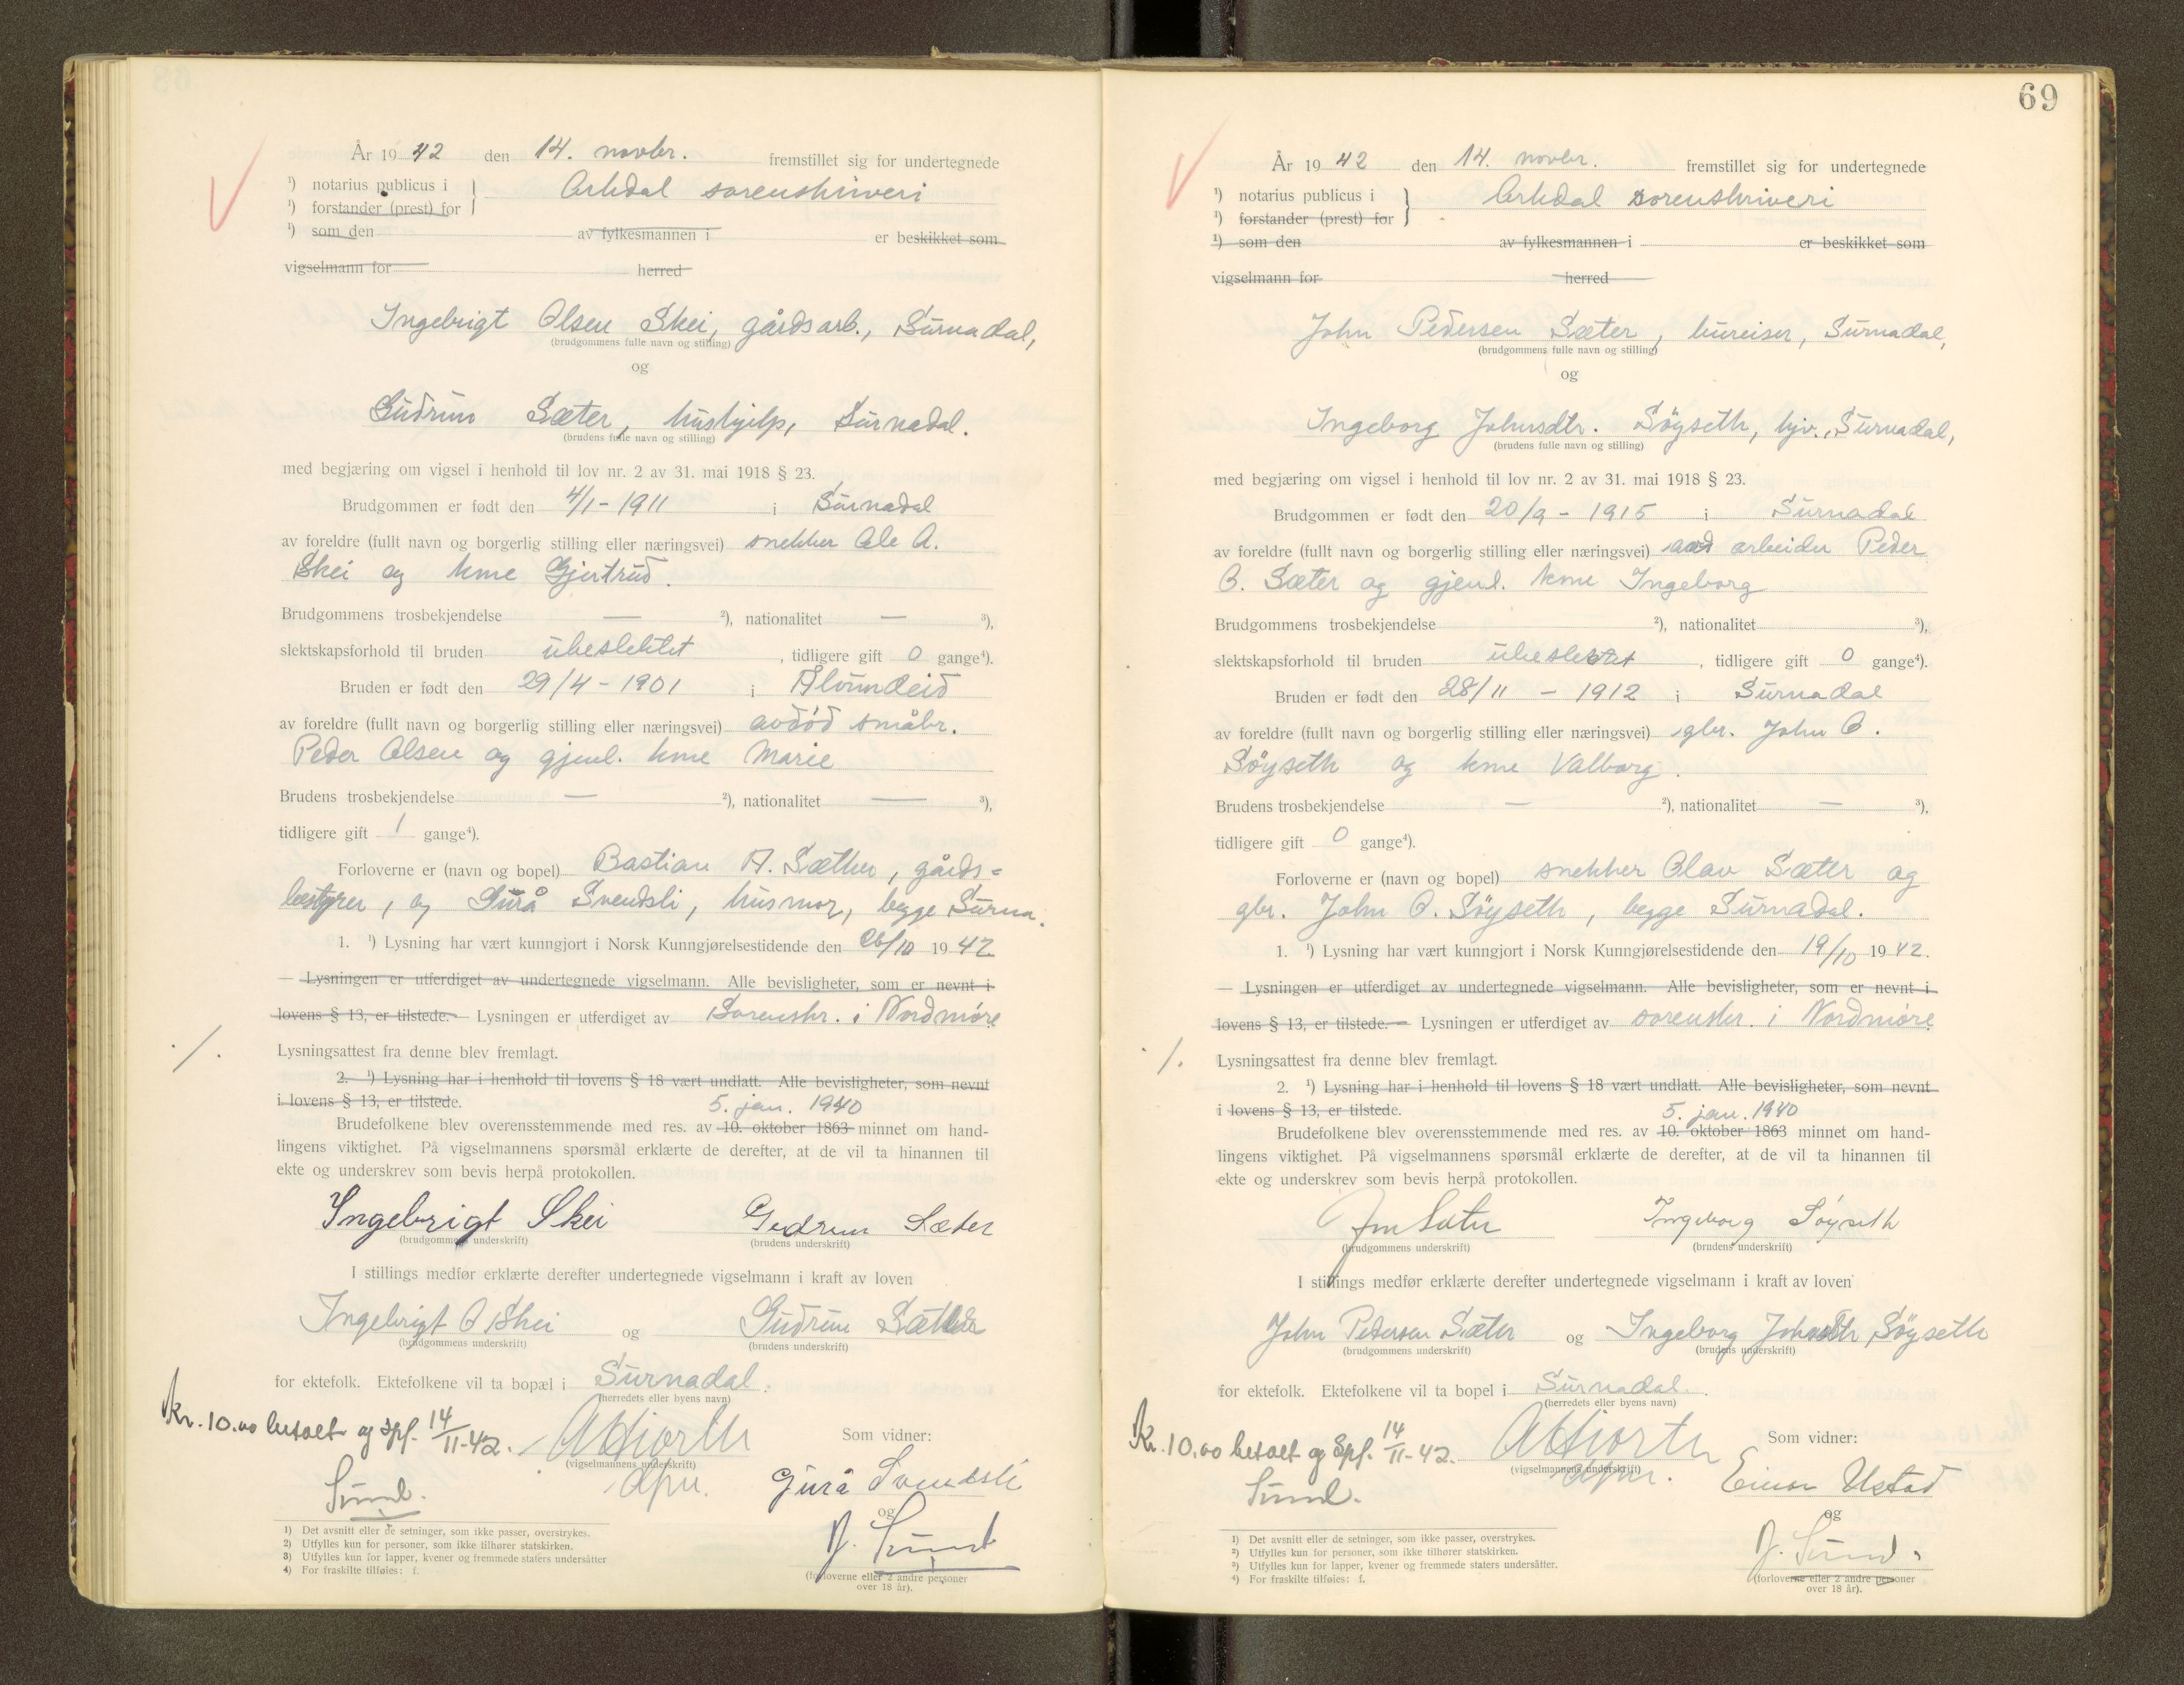 År 1942 den 14. novbr. fremstillet sig for undertegnede
¹) notarius publicus i
¹) forstander (prest) for
Orkdal sorenskriveri
¹) som den av fylkesmannen i er beskikket som
vigselmann for herred
Ingebrigt Olsen Skei, gårdsarb., Surnadal,
(brudgommens fulle navn og stilling)
og
Gudrun Sæter, hushjelp, Surnadal.
(brudens fulle navn og stilling)
med begjæring om vigsel i henhold til lov nr. 2 av 31. mai 1918 § 23.
Brudgommen er født den 4/1 - 1911 i Surnadal
av foreldre (fullt navn og borgerlig stilling eller næringsvei) snekker Ole A.
Skei og kone Gjertrud.
Brudgommens trosbekjendelse — ²), nationalitet — ³),
slektskapsforhold til bruden ubeslektet, tidligere gift 0 gange⁴).
Bruden er født den 29/4 - 1901 i Ålvundeid
av foreldre (fullt navn og borgerlig stilling eller næringsvei) avdöd småbr.
Peder Olsen og gjenl. kone Marie
Brudens trosbekjendelse — ²), nationalitet — ³),
tidligere gift 1 gange⁴).
Forloverne er (navn og bopel) Bastian A. Sæther, gårds-
bestyrer, og Gurå Svendsli, husmor, begge Surna.
1. ¹) Lysning har vært kunngjort i Norsk Kunngjørelsestidende den /10 1942
— Lysningen er utferdiget av undertegnede vigselmann. Alle bevisligheter, som er nevnt i
lovens § 13, er tilstede. — Lysningen er utferdiget av Sorenskr. i Nordmöre
./. Lysningsattest fra denne blev fremlagt.
2. ¹) Lysning har i henhold til lovens § 18 vært undlatt. Alle bevisligheter, som nevnt
i lovens § 13, er tilstede.
5. jan. 1940
Brudefolkene blev overensstemmende med res. av 10. oktober 1863 minnet om hand-
lingens viktighet. På vigselmannens spørsmål erklærte de derefter, at de vil ta hinannen til
ekte og underskrev som bevis herpå protokollen.
Ingebrigt Skei Gudrun Sæter
(brudgommens underskrift) (brudens underskrift)
I stillings medfør erklærte derefter undertegnede vigselmann i kraft av loven
Ingebrigt O Skei og Gudrun Sæter
(brudgommens underskrift) (brudens underskrift)
for ektefolk. Ektefolkene vil ta bopæl i Surnadal.
(herredets eller byens navn)
Kr. 10.00 betalt og spf. 14/11-42. A Hiorth Som vidner:
(vigselmannens underskrift)
Sund. dfm. Gurå Svendsli
og
J. Sund
(forloverne eller 2 andre personer
over 18 år).
1) Det avsnitt eller de setninger, som ikke passer, overstrykes.
2) Utfylles kun for personer, som ikke tilhører statskirken.
3) Utfylles kun for lapper, kvener og fremmede staters undersåtter
4) For fraskilte tilføies: f.
69
År 1942 den 14. novbr. fremstillet sig for undertegnede
¹) notarius publicus i
¹) forstander (prest) for
Orkdal sorenskriveri
¹) som den av fylkesmannen i er beskikket som
vigselmann for herred
John Pedersen Sæter, bureiser, Surnadal,
(brudgommens fulle navn og stilling)
og
Ingeborg Johnsdtr. Söyseth, hjv., Surnadal,
(brudens fulle navn og stilling)
med begjæring om vigsel i henhold til lov nr. 2 av 31. mai 1918 § 23.
Brudgommen er født den 20/9 - 1915 i Surnadal
av foreldre (fullt navn og borgerlig stilling eller næringsvei) arbeider Peder
O. Sæter og gjenl. kone Ingeborg
Brudgommens trosbekjendelse ²), nationalitet ³),
slektskapsforhold til bruden ubeslektet, tidligere gift 0 gange⁴).
Bruden er født den 28/11 - 1912 i Surnadal
av foreldre (fullt navn og borgerlig stilling eller næringsvei) gbr. John O.
Söyseth og kone Valborg.
Brudens trosbekjendelse — ²), nationalitet — ³),
tidligere gift 0 gange⁴).
Forloverne er (navn og bopel) snekker Olav Sæter og
gbr. John O. Söyseth, begge Surnadal.
1. ¹) Lysning har vært kunngjort i Norsk Kunngjørelsestidende den 19/10 1942.
— Lysningen er utferdiget av undertegnede vigselmann. Alle bevisligheter, som er nevnt i
lovens § 13, er tilstede. — Lysningen er utferdiget av sorenskr. i Nordmöre
./. Lysningsattest fra denne blev fremlagt.
2. ¹) Lysning har i henhold til lovens § 18 vært undlatt. Alle bevisligheter, som nevnt
i lovens § 13, er tilstede.
5. jan. 1940
Brudefolkene blev overensstemmende med res. av 10. oktober 1863 minnet om hand-
lingens viktighet. På vigselmannens spørsmål erklærte de derefter, at de vil ta hinannen til
ekte og underskrev som bevis herpå protokollen.
Jon Sæter Ingeborg Söyseth
(brudgommens underskrift) (brudens underskrift)
I stillings medfør erklærte derefter undertegnede vigselmann i kraft av loven
John Pedersen Sæter og Ingeborg Johnsdtr Söyseth
(brudgommens underskrift) (brudens underskrift)
for ektefolk. Ektefolkene vil ta bopel i Surnadal.
(herredets eller byens navn)
Kr. 10.00 betalt og Spf. 14/11-42. A Hiorth Som vidner:
(vigselmannens underskrift)
Sund. dfm. Einar Ustad
og
J. Sund.
(forloverne eller 2 andre personer
over 18 år).
¹) Det avsnitt eller de setninger, som ikke passer, overstrykes.
²) Utfylles kun for personer, som ikke tilhører statskirken.
³) Utfylles kun for lapper, kvener og fremmede staters undersåtter.
⁴) For fraskilte tilføies: f.